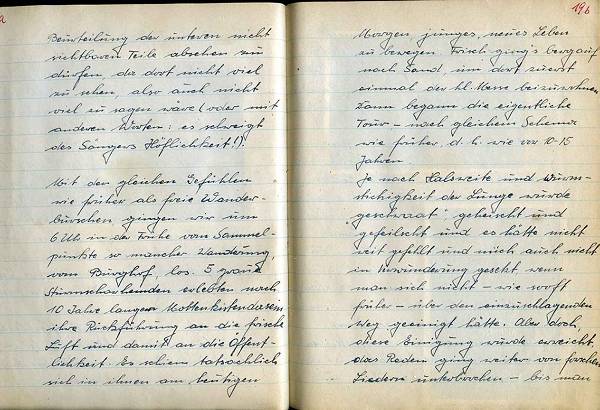 a
Beurteilung der unteren nicht
sichtbaren Teile absehen zu
dürfen, da dort nicht viel
zu sehen, also auch nicht
viel zu sagen wäre (oder mit
anderen Worten: es schweigt
des Sängers Höflichkeit!).
Mit den gleichen Gefühlen
wie früher als freie Wander-
burschen gingen wir um
6 Uhr in der Frühe vom Sammel-
punkte so mancher Wanderung,
vom Burghof, los. 5 graue
Sturmscharhemden erlebten nach
10 Jahre langem Mottenkistendasein
ihre Rückführung an die frische
Luft und damit an die Öffent-
lichkeit. Es schien tatsächlich
sich in ihnen am heutigen
196
Morgen junges, neues Leben
zu bewegen. Frisch ging's bergauf
nach Sand, um dort zuerst
einmal der hl. Messe beizuwohnen.
Dann begann die eigentliche
Tour – nach gleichem Schema
wie früher, d. h. wie vor 10-15
Jahren.
Je nach Halsweite und Wurm-
stichigkeit der Lunge wurde
"geschwaat" gekeucht und
gefeilscht und es hätte nicht
weit gefehlt und mich auch nicht
in Verwunderung gesetzt wenn
man sich nicht – wie so oft
früher – über den einzuschlagenden
Weg geeinigt hätte. Aber doch,
diese Einigung wurde erreicht,
das Reden ging weiter von forschen
Liedern unterbrochen – bis man